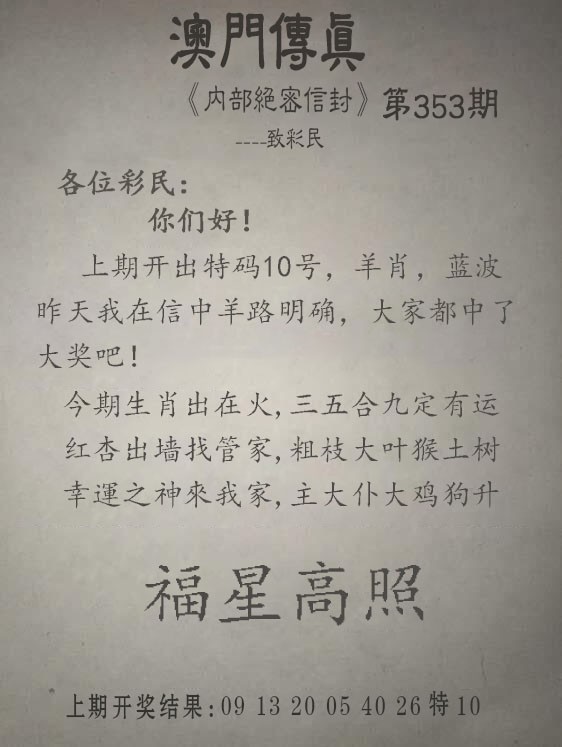 澳門傳眞
《内部絕密信封》第353期
----致彩民
各位彩民:
你们好!
上期开出特码10号，羊肖，蓝波
昨天我在信中羊路明确，大家都中了
大奖吧!
今期生肖出在火,三五合九定有运
红杏出墙找管家,粗枝大叶猴土树
幸運之神來我家,主大仆大鸡狗升
福星高照
上期开奖结果:09 13 20 05 40 26特10